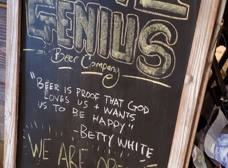 GENIUS
Beer Company
"BEER IS PROOF THAT GOD
LOVES US + WANTS
US TO BE HAPPY"
-BETTY WHITE
WE ARE